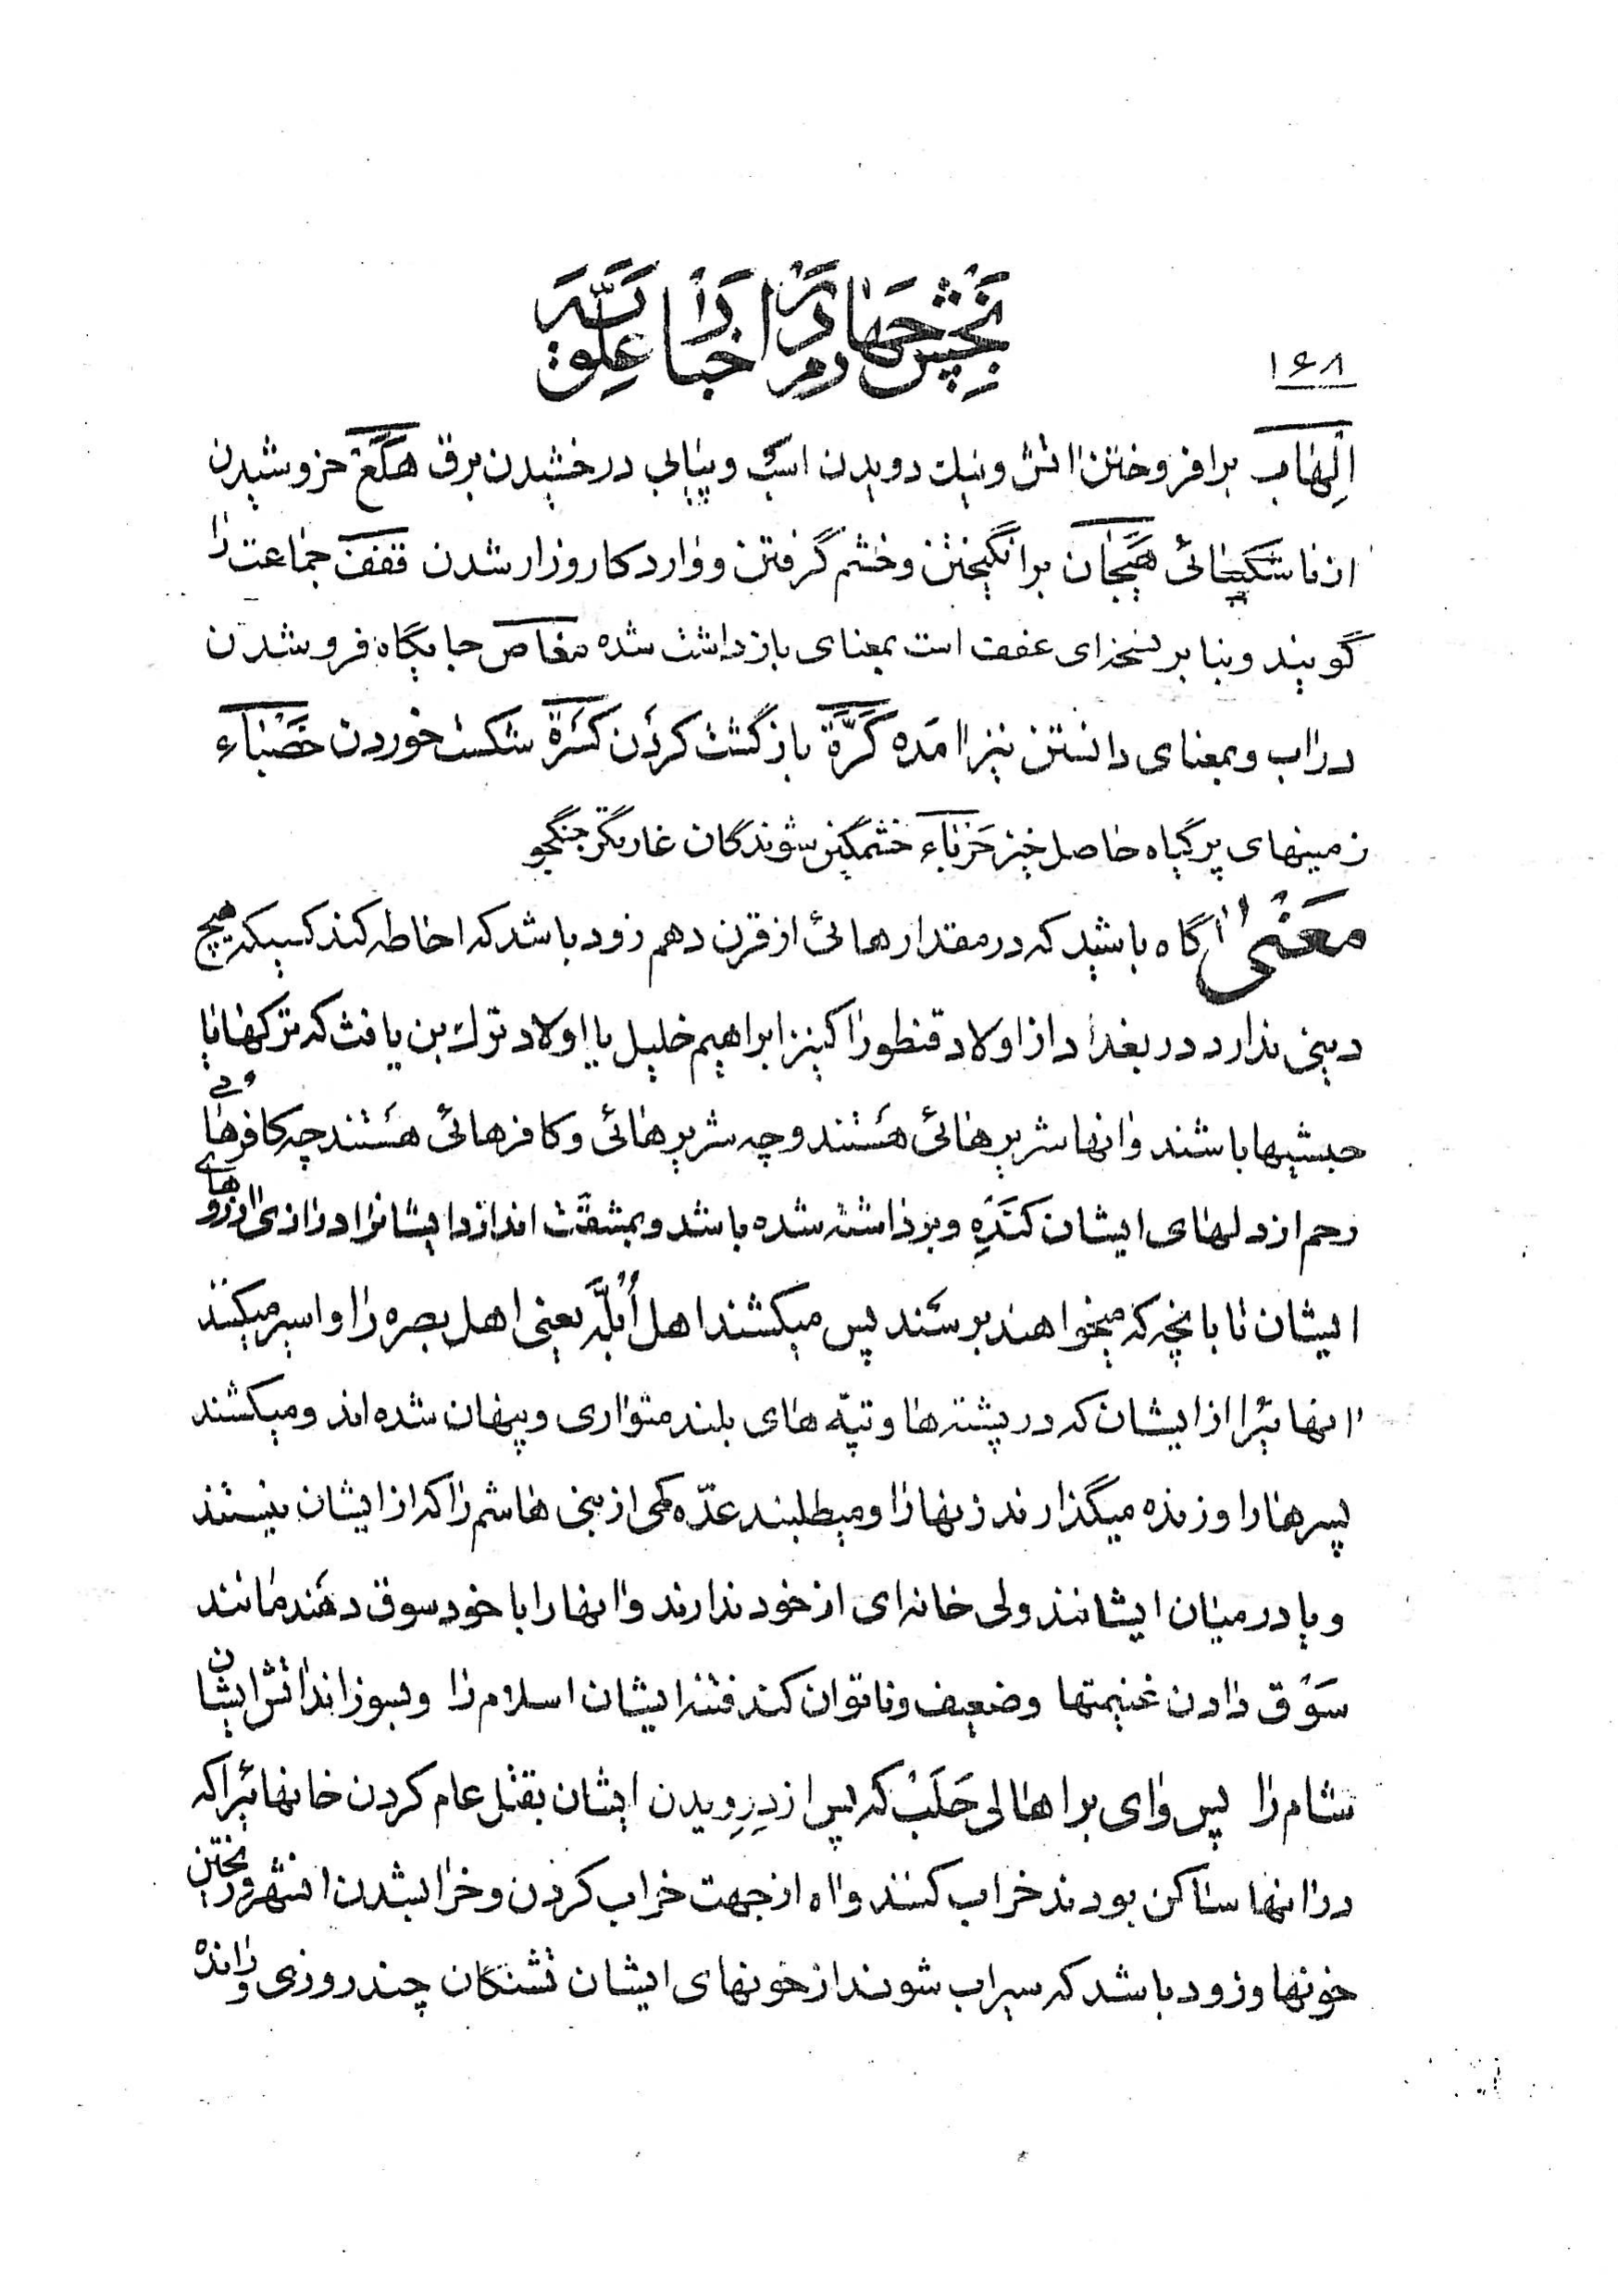 بخش چهارم در اخبار علویّه
۱۶۸
اِلْهٰاب برافروختن اتش ونیك دویدن اسب وپیاپی درخشیدن برق هَكَعْ خروشیدن
از ناشكیبائی هَیَجٰان برانگیختن وخشم گرفتن ووارد كار وزار شدن قفف جماعت را
گویند وبنا بر نسخه‌ای عفف است بمعنای بازداشت شده مغاص جایگاه فروشدن
دراب وبمعنای دانستن نیز امَده كَرَّة بازگشت كردَن كَسْرَة شكست خوردن خَصْبٰاء
زمینهای پرگیاه حاصل خیز حَرْبٰاء خشمگین شوندگان غارتگر جنگجو
مَعْنی اگاه باشید كه در مقدارهائی از قرن دهم زود باشد كه احاطه كند كسیكه هیچ
دینی ندارد در بغداد از اولاد قنطورا كنیز ابراهیم خلیل یا اولاد ترك بن یافث كه تركها یا
حبشیها باشند وانها شریرهائی هَستند وچه شریرهائی وكافرهائی هَستند چه كافرهائی
رحم از دلهای ایشان كَنَدَه وبرداشته شده باشد وبمشقّت اندازد ایشانرا درازی ارزوهای
ایشان تا بانچه كه میخواهند برسَند پس میكشند اهل اُبُلَّه یعنی اهل بصره را واسیر میكنند
انهائیرا از ایشان كه در پشته‌ها وتپّه‌های بلند متواری وپنهان شده‌اند ومیكشند
پسرها را وزنده میگذارند زنها را ومیطلبند عدّه كمی از بنی هاشم را كه از ایشان نیستند
ویا در میان ایشانند ولی خانه‌ای از خود ندارند وانها را با خود سوق دهَند مانند
سَوْق دادن غنیمتها وضعیف وناتوان كند فتنه ایشان اسلام را وبسوزاند اتش ایشان
شام را پس وای بر اهالی حَلَبْ كه پس از دِرِویدن ایشان بقتل عام كردن خانهائیرا كه
در انها ساكن بودند خراب كنند واه از جهت خراب كردن وخرابشدن انشهر وریختن
خونها وزود باشد كه سیراب شوند از خونهای ایشان تشنگان چند روزی ورانده